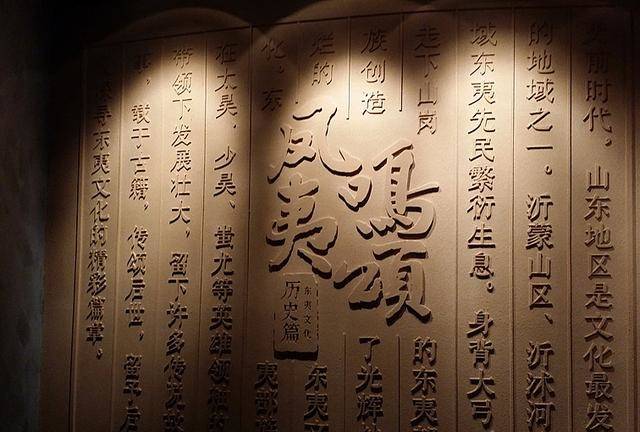 前时代，山东地区是文化最发
的地域之一。沂蒙山区、沂沭河
域东夷先民繁衍生息。身背大弓
走下山岗
的东夷
族创造
了光辉
烂的
东夷文
化，东
夷部
凤鳴
夷頌
东夷文化
历史篇
在太昊、少昊、蚩尤等英雄领
带领下发展壮大，留下许多传说
事，载于古籍，传颂后世，留予后
寻东夷文化的精彩篇章。